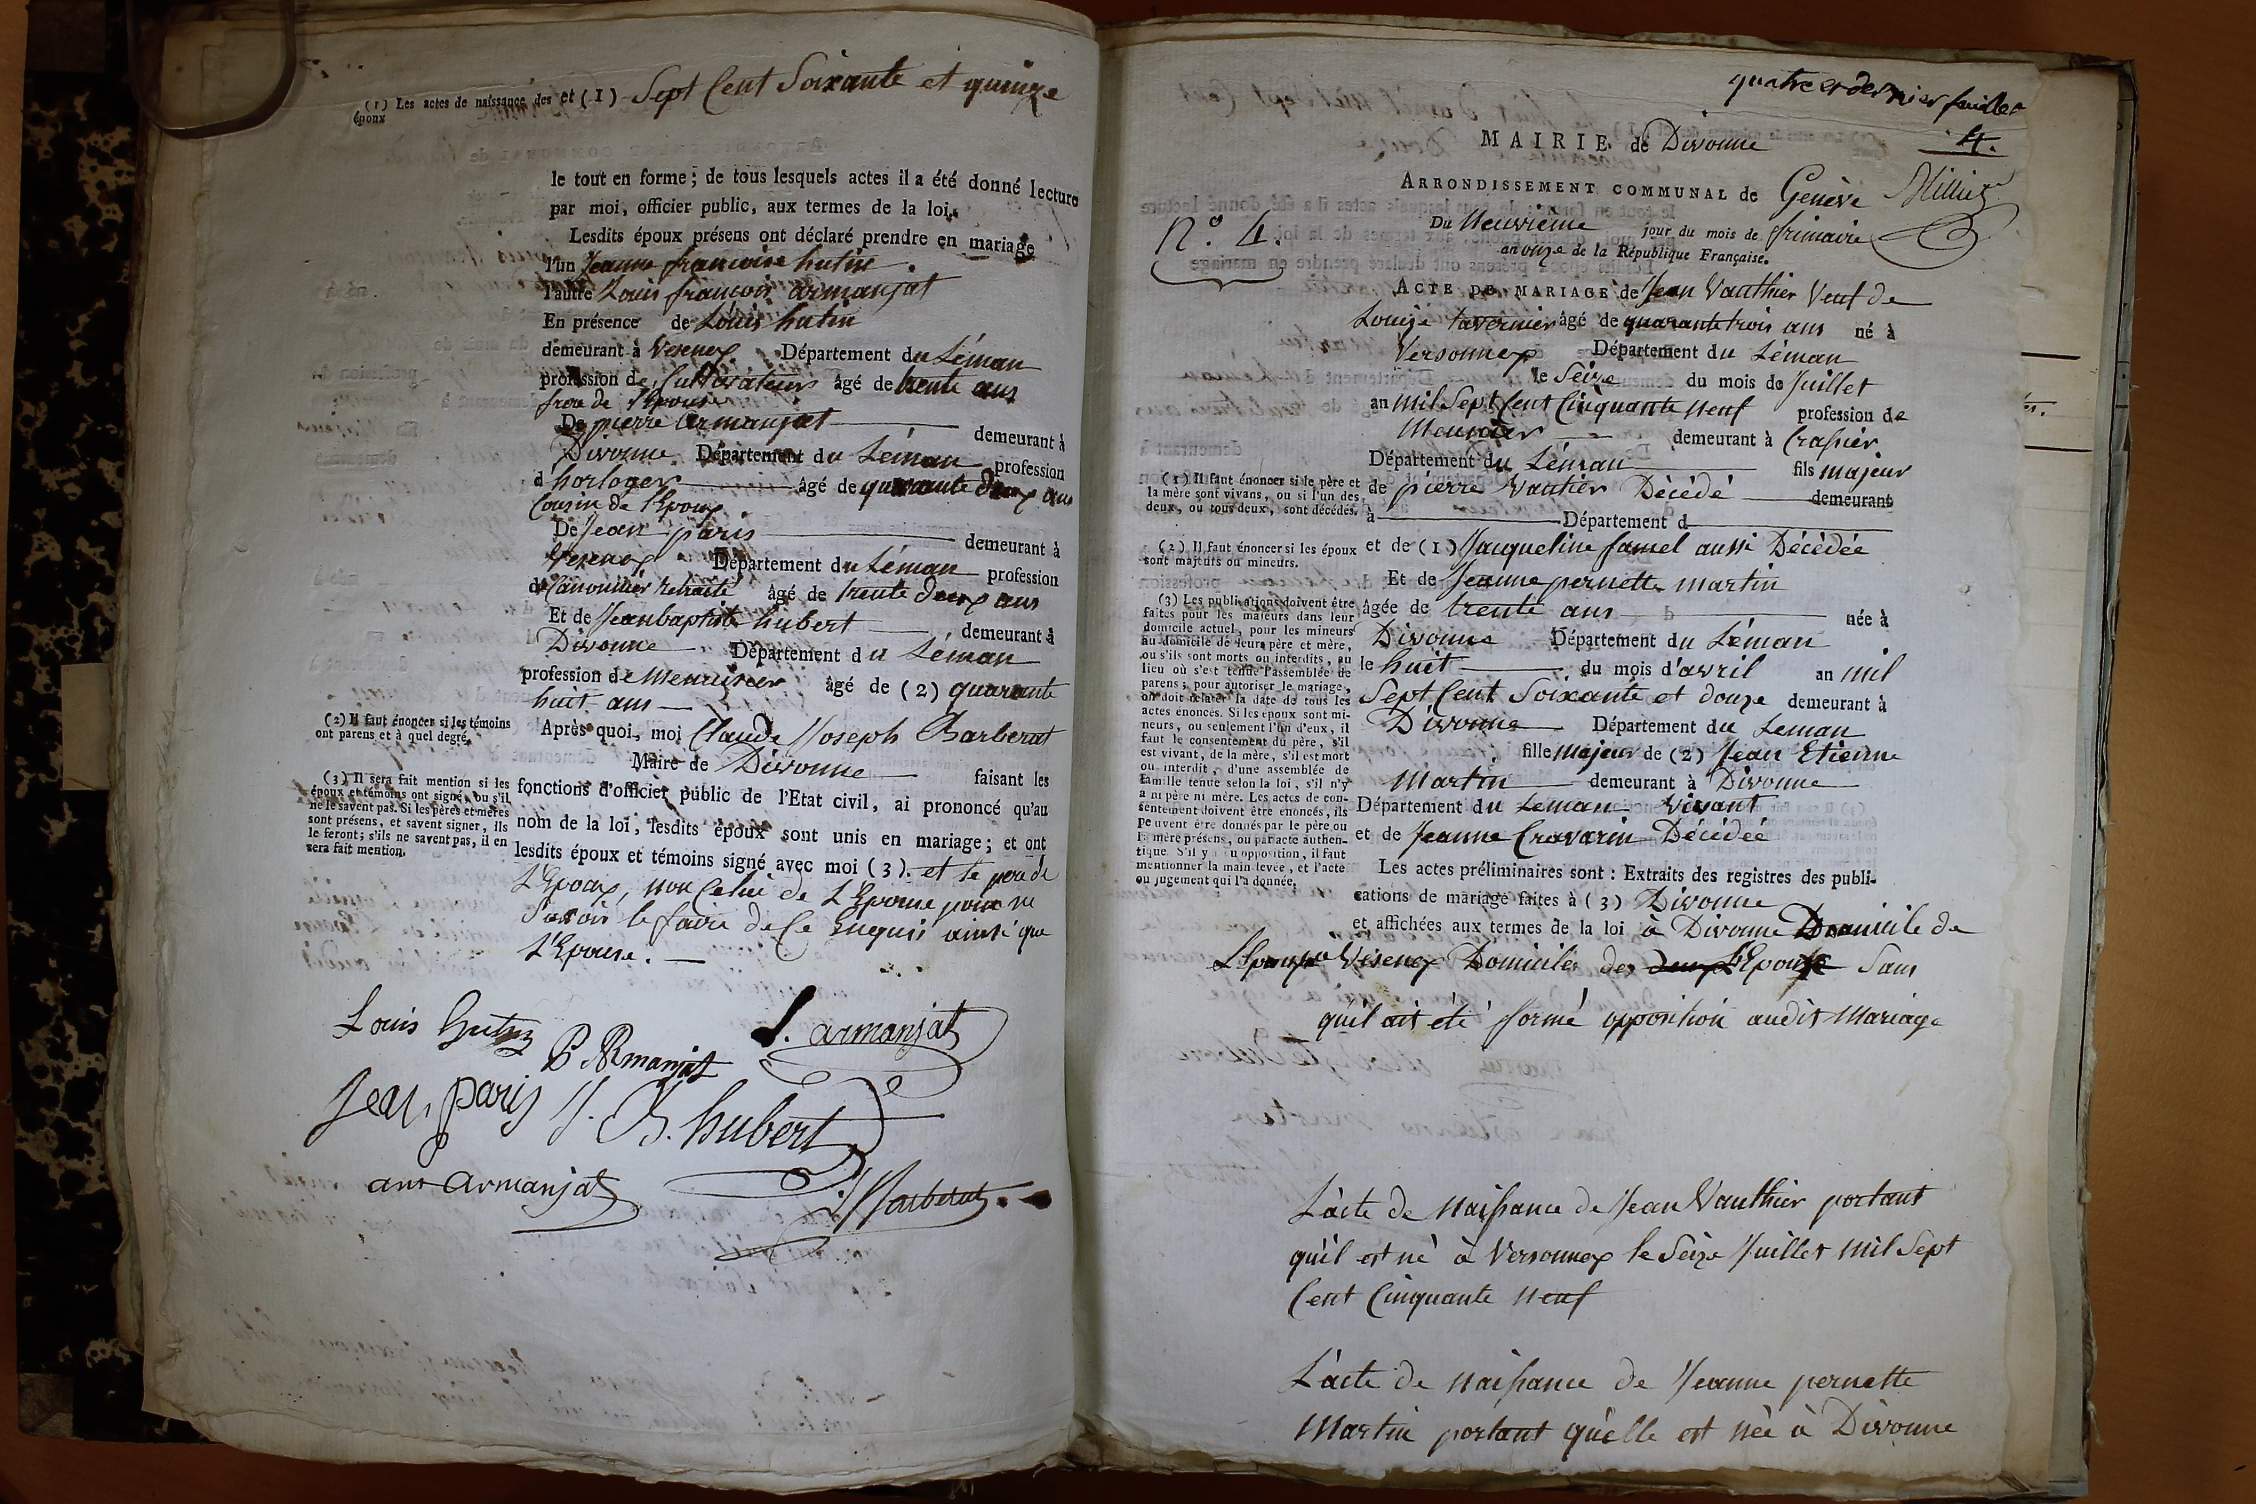 (1) Les actes de naissance des
époux
et (1) Sept Cent Soixante et quinze
le tout en forme ; de tous lesquels actes il a été donné lecture
par moi, officier public, aux termes de la loi.
Lesdits époux présens ont déclaré prendre en mariage
l'un Jeanne francoise hutin
l'autre Louis françois armanjat
En présence de Louis hutin
demeurant à Vesenex Département du Léman
profession de Cultivateur âgé de trente ans
frere de l'Epouse
De pierre armanjat demeurant à
Divonne Département du Léman profession
d'horloger âgé de quarante deux ans
Cousin de l'Epoux
De Jean paris demeurant à
Vesenex Département du Léman profession
de Canonnier retraité âgé de trente deux ans
Et de Jean baptiste hubert demeurant à
Divonne Département du Léman
profession de Menuisier âgé de (2) quarante
huit ans
(2) Il faut énoncer si les témoins
ont parens et à quel degré.
Après quoi, moi Claude Joseph Barberat
Maire de Divonne faisant les
fonctions d'officier public de l'Etat civil, ai prononcé qu'au
nom de la loi, lesdits époux sont unis en mariage ; et ont
lesdits époux et témoins signé avec moi (3). et le pere de
L'Epoux, non Celui de L'Epouse pour ne
Savoir le faire de Ce Enquis ainsi que
L'Epouse.
(3) Il sera fait mention si les
époux et témoins ont signé, ou s'il
ne le savent pas. Si les pères et mères
sont présens, et savent signer, ils
le feront ; s'ils ne savent pas, il en
sera fait mention.
Louis hutin
P Armanjat
L. armanjat
Jean paris
J. B. hubert
ant armanjat
J Barberat
quatre et dernier feuillet
4.
MAIRIE de Divonne
ARRONDISSEMENT COMMUNAL de Genève
N.° 4.
Du Neuvieme jour du mois de frimaire
an onze de la République Française.
ACTE DE MARIAGE de Jean Vauthier Veuf de
Louise tavernier âgé de quarante trois ans né à
Versonnex Département du Léman
le Seize du mois de Juillet
an Mil Sept Cent Cinquante Neuf profession de
Meunier demeurant à Crassier
Département du Léman fils majeur
de pierre Vautier Décédé demeurant
à Département d
et de (1) Jacqueline famel aussi Décédée
Et de Jeanne pernette martin
âgée de trente ans née à
Divonne Département du Léman
le huit du mois d'avril an mil
Sept Cent Soixante et douze demeurant à
Divonne Département du Leman
fille majeur de (2) Jean Etienne
Martin demeurant à Divonne
Département du Leman Vivant
et de Jeanne Cravarin Décédée
Les actes préliminaires sont : Extraits des registres des publi-
cations de mariage faites à (3) Divonne
et affichées aux termes de la loi à Divonne Domicile de
L'Epouse Vesenex Domicile des deux L'Epouse Sans
qu'il ait été formé opposition audit Mariage
(1) Il faut énoncer si le père et
la mère sont vivans, ou si l'un des
deux, ou tous deux, sont décédés.
(2) Il faut énoncer si les époux
sont majeurs ou mineurs.
(3) Les publications doivent être
faites pour les majeurs dans leur
domicile actuel, pour les mineurs
au domicile de leurs père et mère,
ou s'ils sont morts ou interdits, au
lieu où s'est tenue l'assemblée de
parens ; pour autoriser le mariage,
on doit relater la date de tous les
actes énoncés. Si les époux sont mi-
neurs, ou seulement l'un d'eux, il
faut le consentement du père, s'il
est vivant, de la mère, s'il est mort
ou interdit, d'une assemblée de
famille tenue selon la loi, s'il n'y
a ni père ni mère. Les actes de con-
sentement doivent être énoncés, ils
peuvent être donnés par le père ou
la mère présens, ou par acte authen-
tique S'il y a u opposition, il faut
mentionner la main levée, et l'acte
ou jugement qui l'a donnée.
L'acte de Naissance de Jean Vauthier portant
qu'il est né à Versonnex le Seize Juillet Mil Sept
Cent Cinquante Neuf
L'acte de Naissance de Jeanne pernette
Martin portant qu'elle est née à Divonne